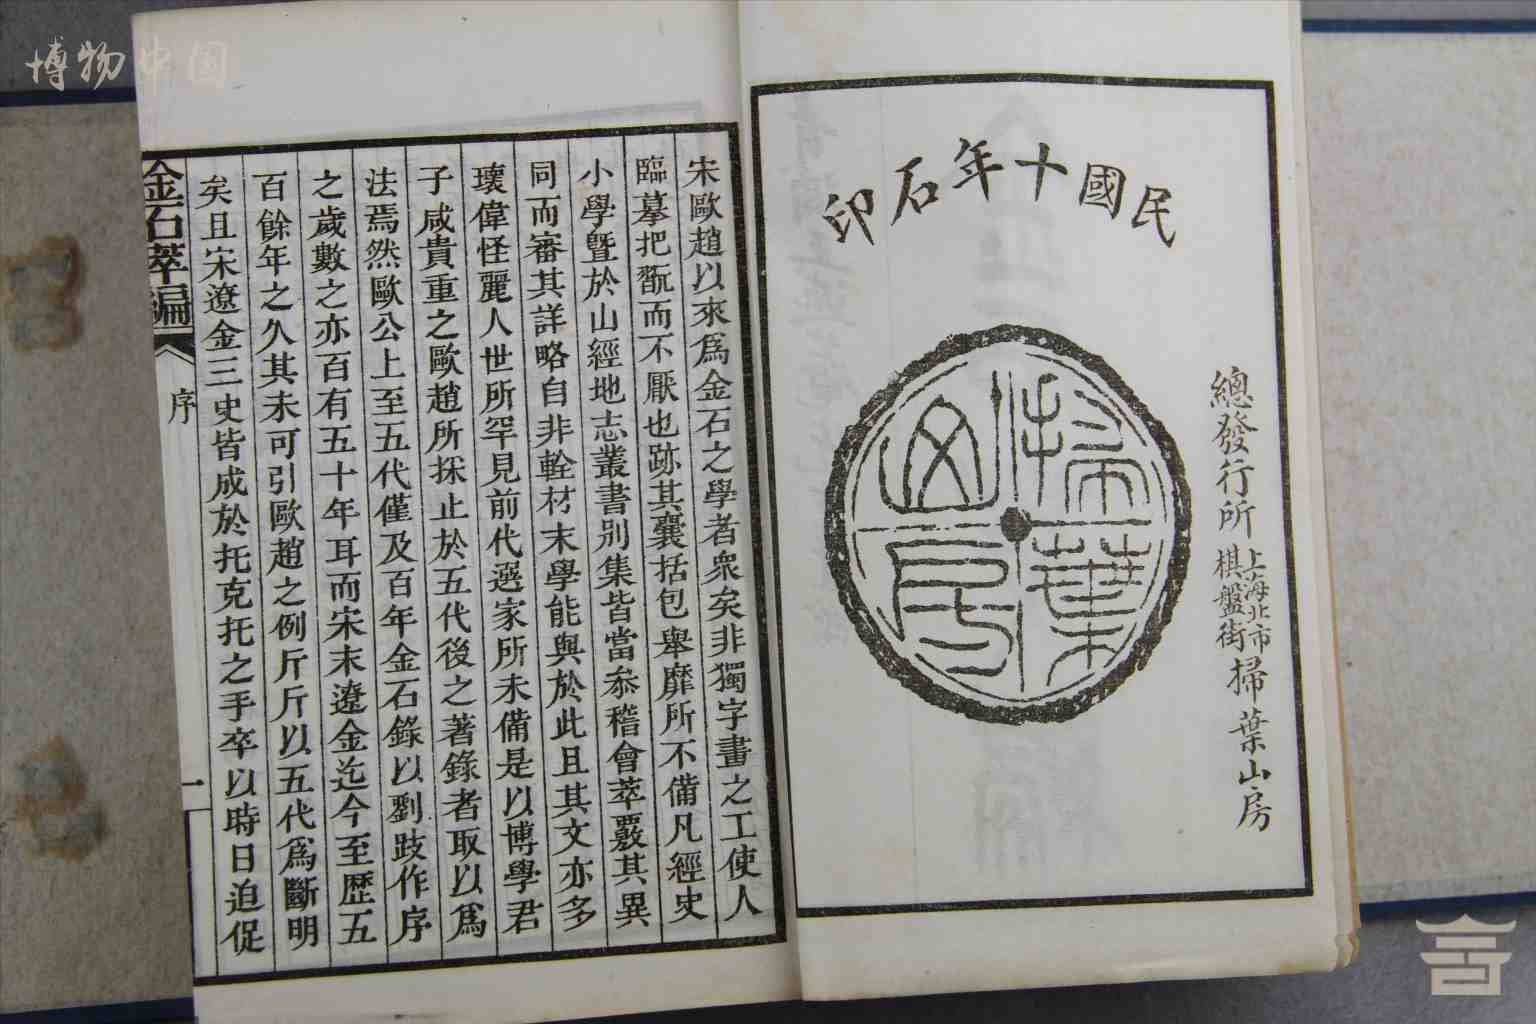 博物中国
民國十年石印
掃葉山房
總發行所 上海北市棋盤街 掃葉山房
宋歐趙以來爲金石之學者衆矣非獨字畫之工使人
臨摹把翫而不厭也跡其囊括包舉靡所不備凡經史
小學暨於山經地志叢書別集皆當叅稽會萃覈其異
同而審其詳略自非輇材末學能與於此且其文亦多
瓌偉怪麗人世所罕見前代選家所未備是以博學君
子咸貴重之歐趙所採止於五代後之著錄者取以爲
法焉然歐公上至五代僅及百年金石錄以劉跂作序
之歲數之亦百有五十年耳而宋末遼金迄今至歷五
百餘年之久其未可引歐趙之例斤斤以五代爲斷明
矣且宋遼金三史皆成於托克托之手卒以時日迫促
金石萃編
序
一